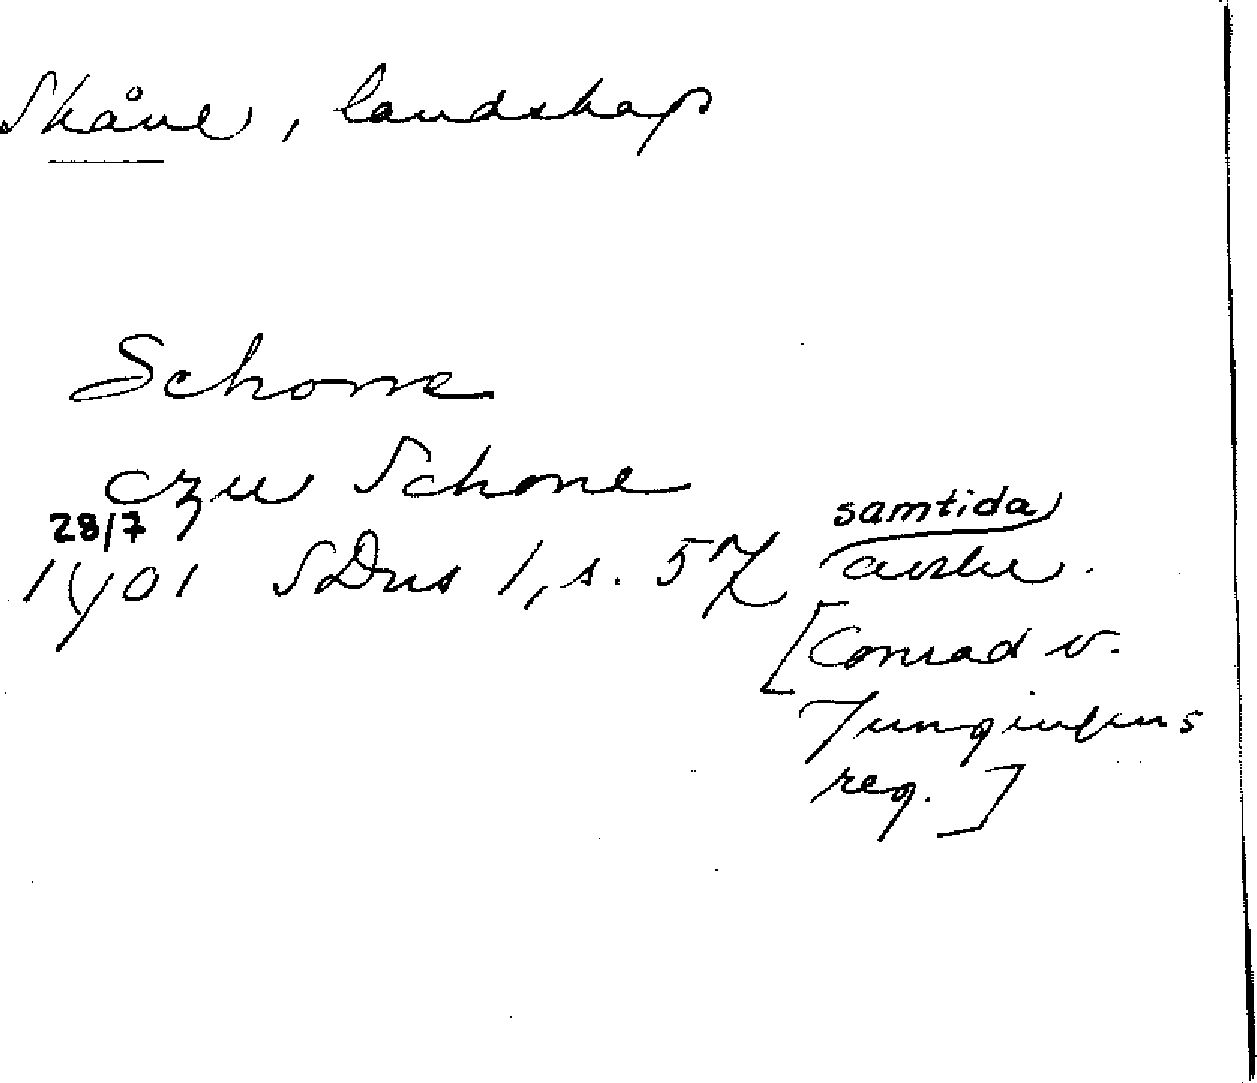 Skåne, landskap
Schone
czu Schone
28/7
samtida
1401 SDns 1, s. 57 avskr.
[Conrad v.
Jungingens
reg.]